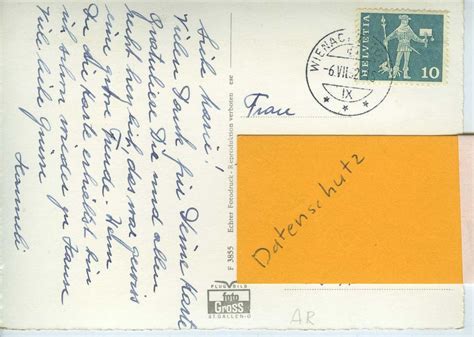 Liebe Marie!
Vielen Dank für Deine Karte
Gratuliere Dir und allen
recht herzlich, das war gewiss
eine grosse Freude. Wenn
Du die Karte erhältst bin
ich schon wieder zu Hause
Viele liebe Grüsse
F 3855 Echter Fotodruck - Reproduktion verboten
WIENAC
-6.VII.
IX
HELVETIA
10
Frau
Datenschutz
FLUGBILD
foto
Gross
ST. GALLEN-O
AR